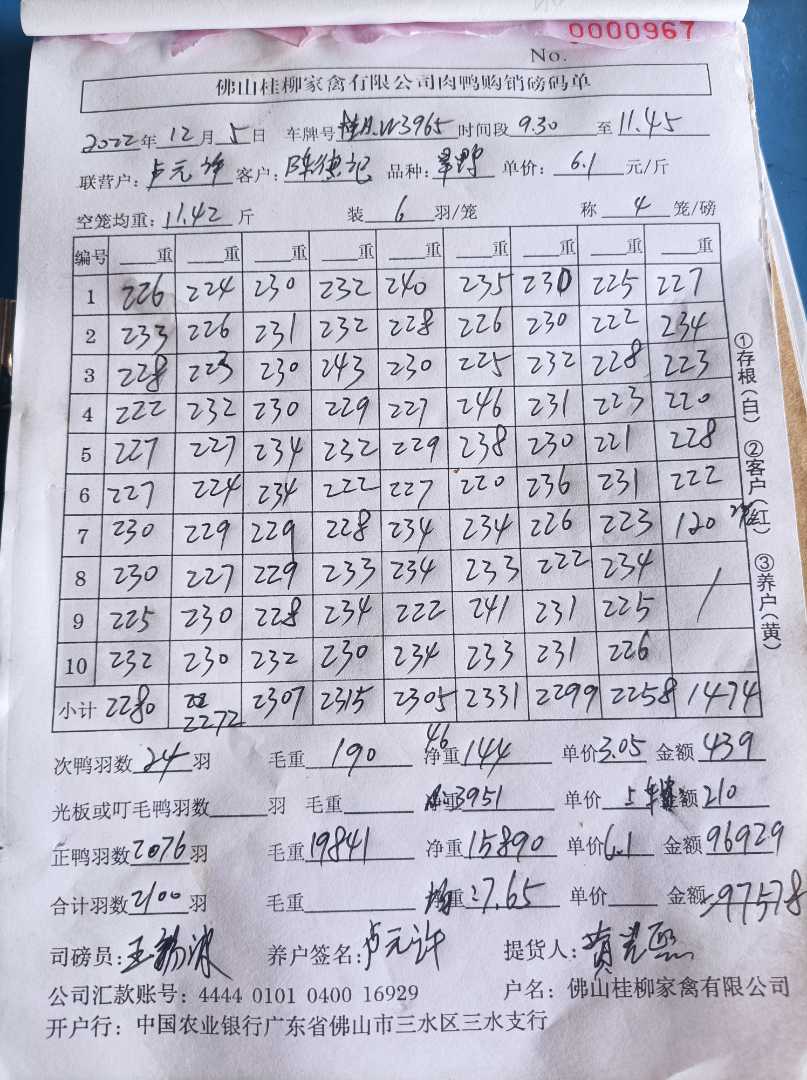 0000967
No.
佛山桂柳家禽有限公司肉鸭购销磅码单
2022年12月5日 车牌号桂A.W3965时间段9.30至11.45
联营户:卢元许 客户:陈德记 品种:草野 单价:6.1元/斤
空笼均重:11.42斤 装6羽/笼 称4笼/磅
编号 重 重 重 重 重 重 重 重 重
1 226 224 230 232 240 235 230 225 227
2 233 226 231 232 228 226 230 222 234
3 228 223 230 243 230 225 232 228 223
4 222 232 230 229 227 246 231 223 220
5 227 227 234 232 229 238 230 221 228
6 227 224 234 222 227 220 236 231 222
7 230 229 229 228 234 234 226 223 120
8 230 227 229 233 234 233 222 234
9 225 230 228 234 222 241 231 225 /
10 232 230 232 230 234 233 231 226
小计 2280 2272 2307 2315 2305 2331 2299 2258 1474
次鸭羽数24羽 毛重190 46 净重144 单价3.05 金额439
光板或叮毛鸭羽数 羽 毛重 3951 单价 5 金额210
正鸭羽数2076羽 毛重19841 净重15890 单价6.1 金额96929
合计羽数2100羽 毛重 均重:7.65 单价 金额97578
司磅员: 养户签名:卢元许 提货人:
公司汇款账号: 4444 0101 0400 16929 户名: 佛山桂柳家禽有限公司
开户行: 中国农业银行广东省佛山市三水区三水支行
①存根(白) ②客户(红) ③养户(黄)